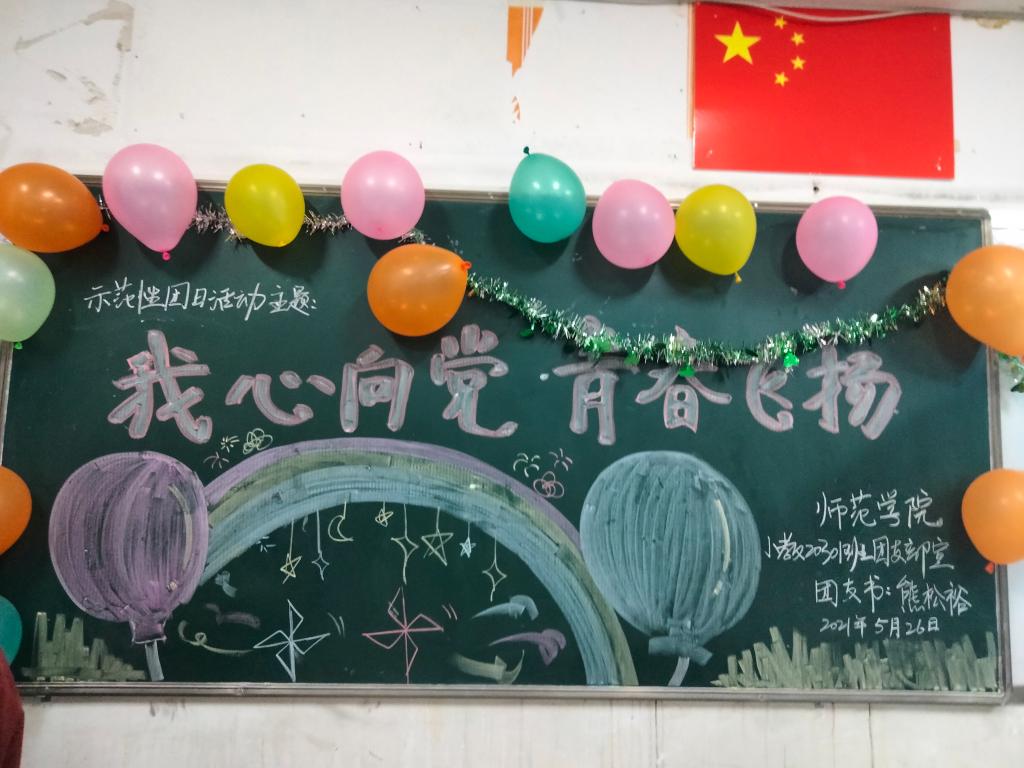 示范性团日活动主题:
我心向党 青春飞扬
师范学院
小教20301班团支部宣
团支书:熊松裕
2021年5月26日